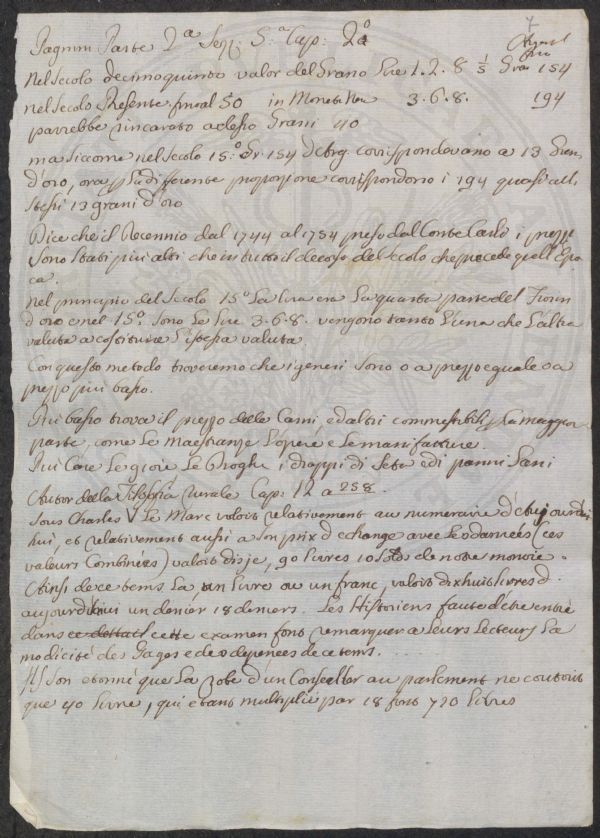 7
Pagnini Parte 2a Sez: 5.a Cap: 2o
Nel secolo decimoquinto valor del Grano Lire 1. 2. 8 1/5 Grai 154
nel secolo Presente fin al 50 in Moneta 3. 6. 8. 194
parrebbe rincarato adesso Grani 40
ma sicome nel secolo 15:o Gr 154 d'Arg. corrispondevano a 13 Grani
d'oro, ora p la differente proporzione corrispondono i 194 quasi alli
stessi 13 grani d'oro
Dice che il Decennio dal 1744 al 1754 preso dal Conte Carli i prezzi
sono stati piu altri che in tutto il decorso del secolo che precede quell'Epo
ca.
Nel principio del secolo 15o La Lira era La quarta parte del Fiorin
d'oro e nel 15o sono Le Lire 3. 6. 8. vengono tanto l'una che L'altra
valuta a costituire l'istessa valuta.
Con questo metodo troveremo che i generi sono o a prezzo eguale o a
prezzo piu basso.
Piu basso trova il prezzo delle Carni, ed altri commestibili p la maggior
parte, come Le Maestranze l'opere e Le manifatture.
Piu Care Le gioie Le Droghe i drappi di seta e di panni Lani
Autor della Filosofia rurale Cap: 12 a 258.
Sous Charles V Le Marc valoit relativement au numeraire d'étuj ourdui
hui, et relativement aussi a son prix d'echange avec Les danrées (ces
valeurs Combinées) valoit disje, 90 livres 10 sols de notre monoie.
Ainsi de ce tems La un livre ou un franc valoit dixhuit livres d.
aujourdhui un denier 18 deniers. Les Historiens faute d'étre entré
dans ce dettail cette examen font remarquer a Leurs Lecteurs La
modicité des Gages et des depences de ce tems.....
Ils son etonné que La robe d'un Conseller au parlement ne coutoit
que 40 livre, qui etant multiplié par 18 font 720 livres